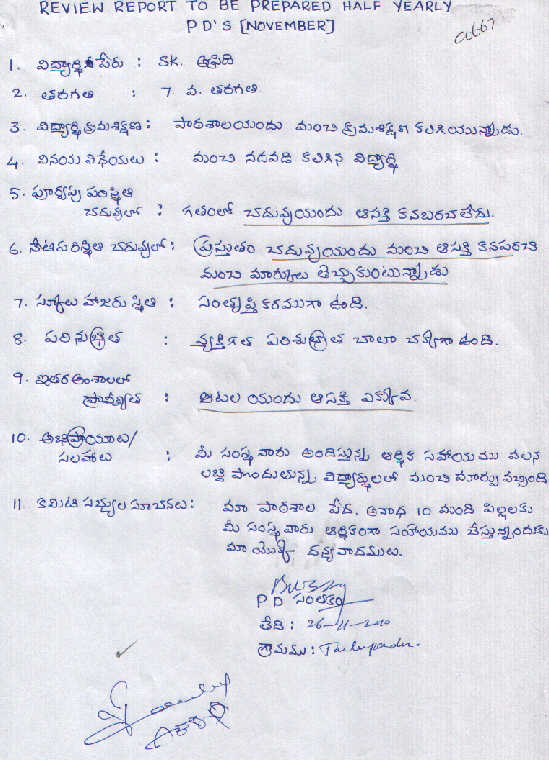 REVIEW REPORT TO BE PREPARED HALF YEARLY
P D'S [NOVEMBER]
1. విద్యార్థి పేరు : SK.
2. తరగతి : 7 వ. తరగతి.
3. విద్యార్థి క్రమశిక్షణ : పాఠశాలయందు మంచి క్రమశిక్షణ కలిగియున్నాడు.
4. వినయ విధేయలు : మంచి నడవడి కలిగిన విద్యార్థి
5. పూర్వపు పరిస్థితి
చదువులో : గతంలో చదువుయందు ఆసక్తి కనబరచలేదు.
6. నేటి పరిస్థితి చదువులో : ప్రస్తుతం చదువుయందు మంచి ఆసక్తి కనపరచి
మంచి మార్కులు తెచ్చుకుంటున్నాడు
7. స్కూలు హాజరు స్థితి : సంతృప్తికరముగా ఉంది.
8. పరిశుభ్రత : వ్యక్తిగత పరిశుభ్రత చాలా చక్కగా ఉంది.
9. ఇతర అంశాలలో
ప్రావీణ్యత : ఆటల యందు ఆసక్తి ఎక్కువ.
10. అభిప్రాయాలు/
సలహాలు : మీ సంస్థ వారు అందిస్తున్న ఆర్థిక సహాయము వలన
లబ్ది పొందుతున్న విద్యార్థులలో మంచి మార్పు వచ్చింది
11. కమిటి సభ్యుల సూచనలు : మా పాఠశాల పేద, అనాధ 10 మంది పిల్లలకు
మీ సంస్థ వారు ఆర్థికంగా సహాయము చేస్తున్నందుకు
మా యొక్క ధన్యవాదములు.
P D సంతకం
తేది : 26-11-2010
గ్రామము :